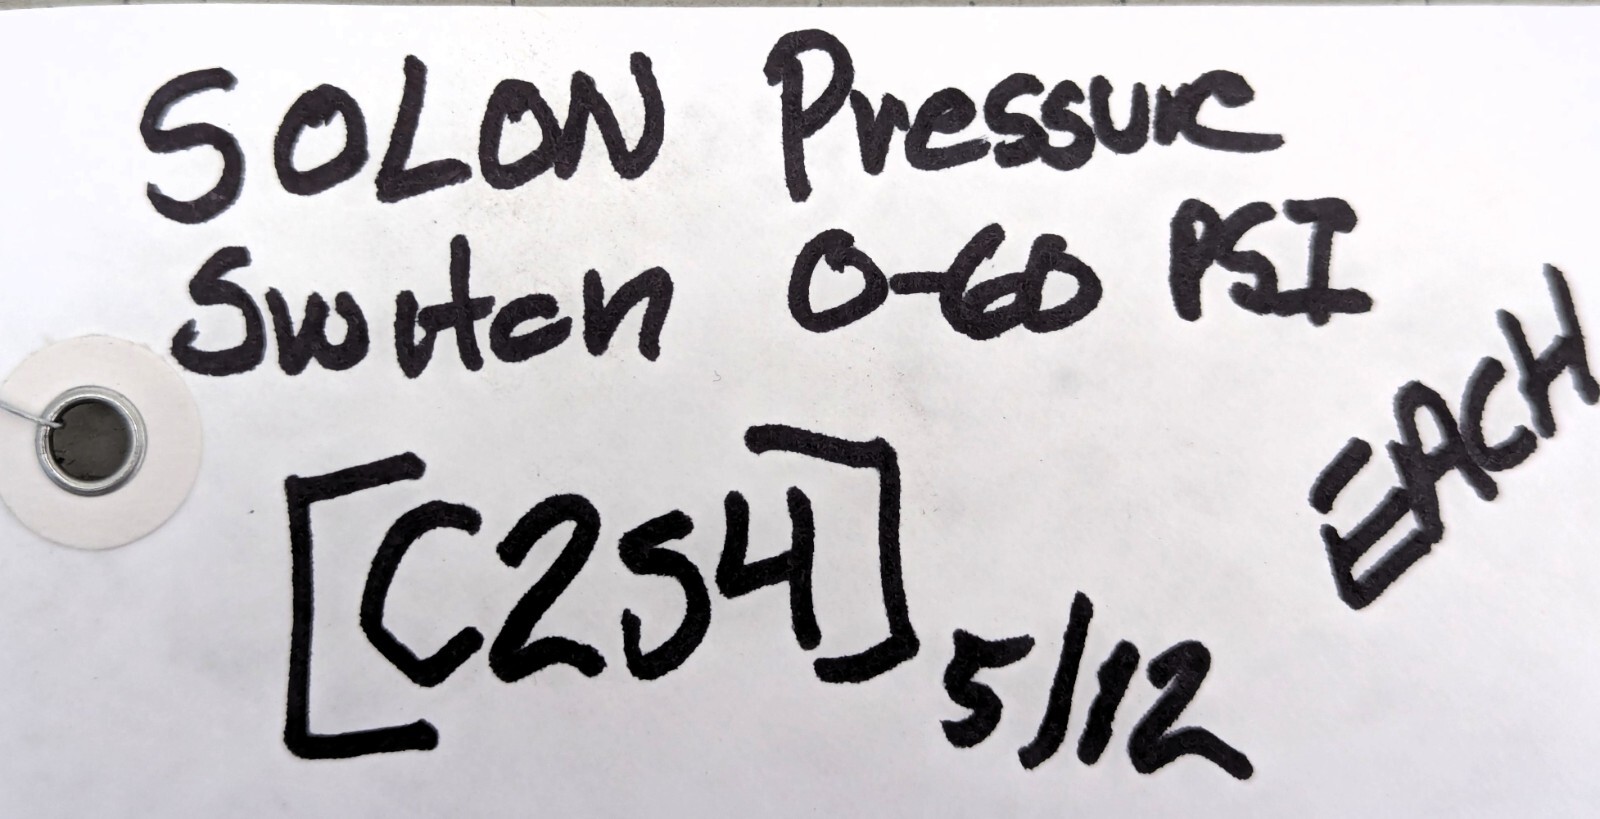 SOLON Pressure
Switch 0-60 PSI
EACH
[C254]
5/12